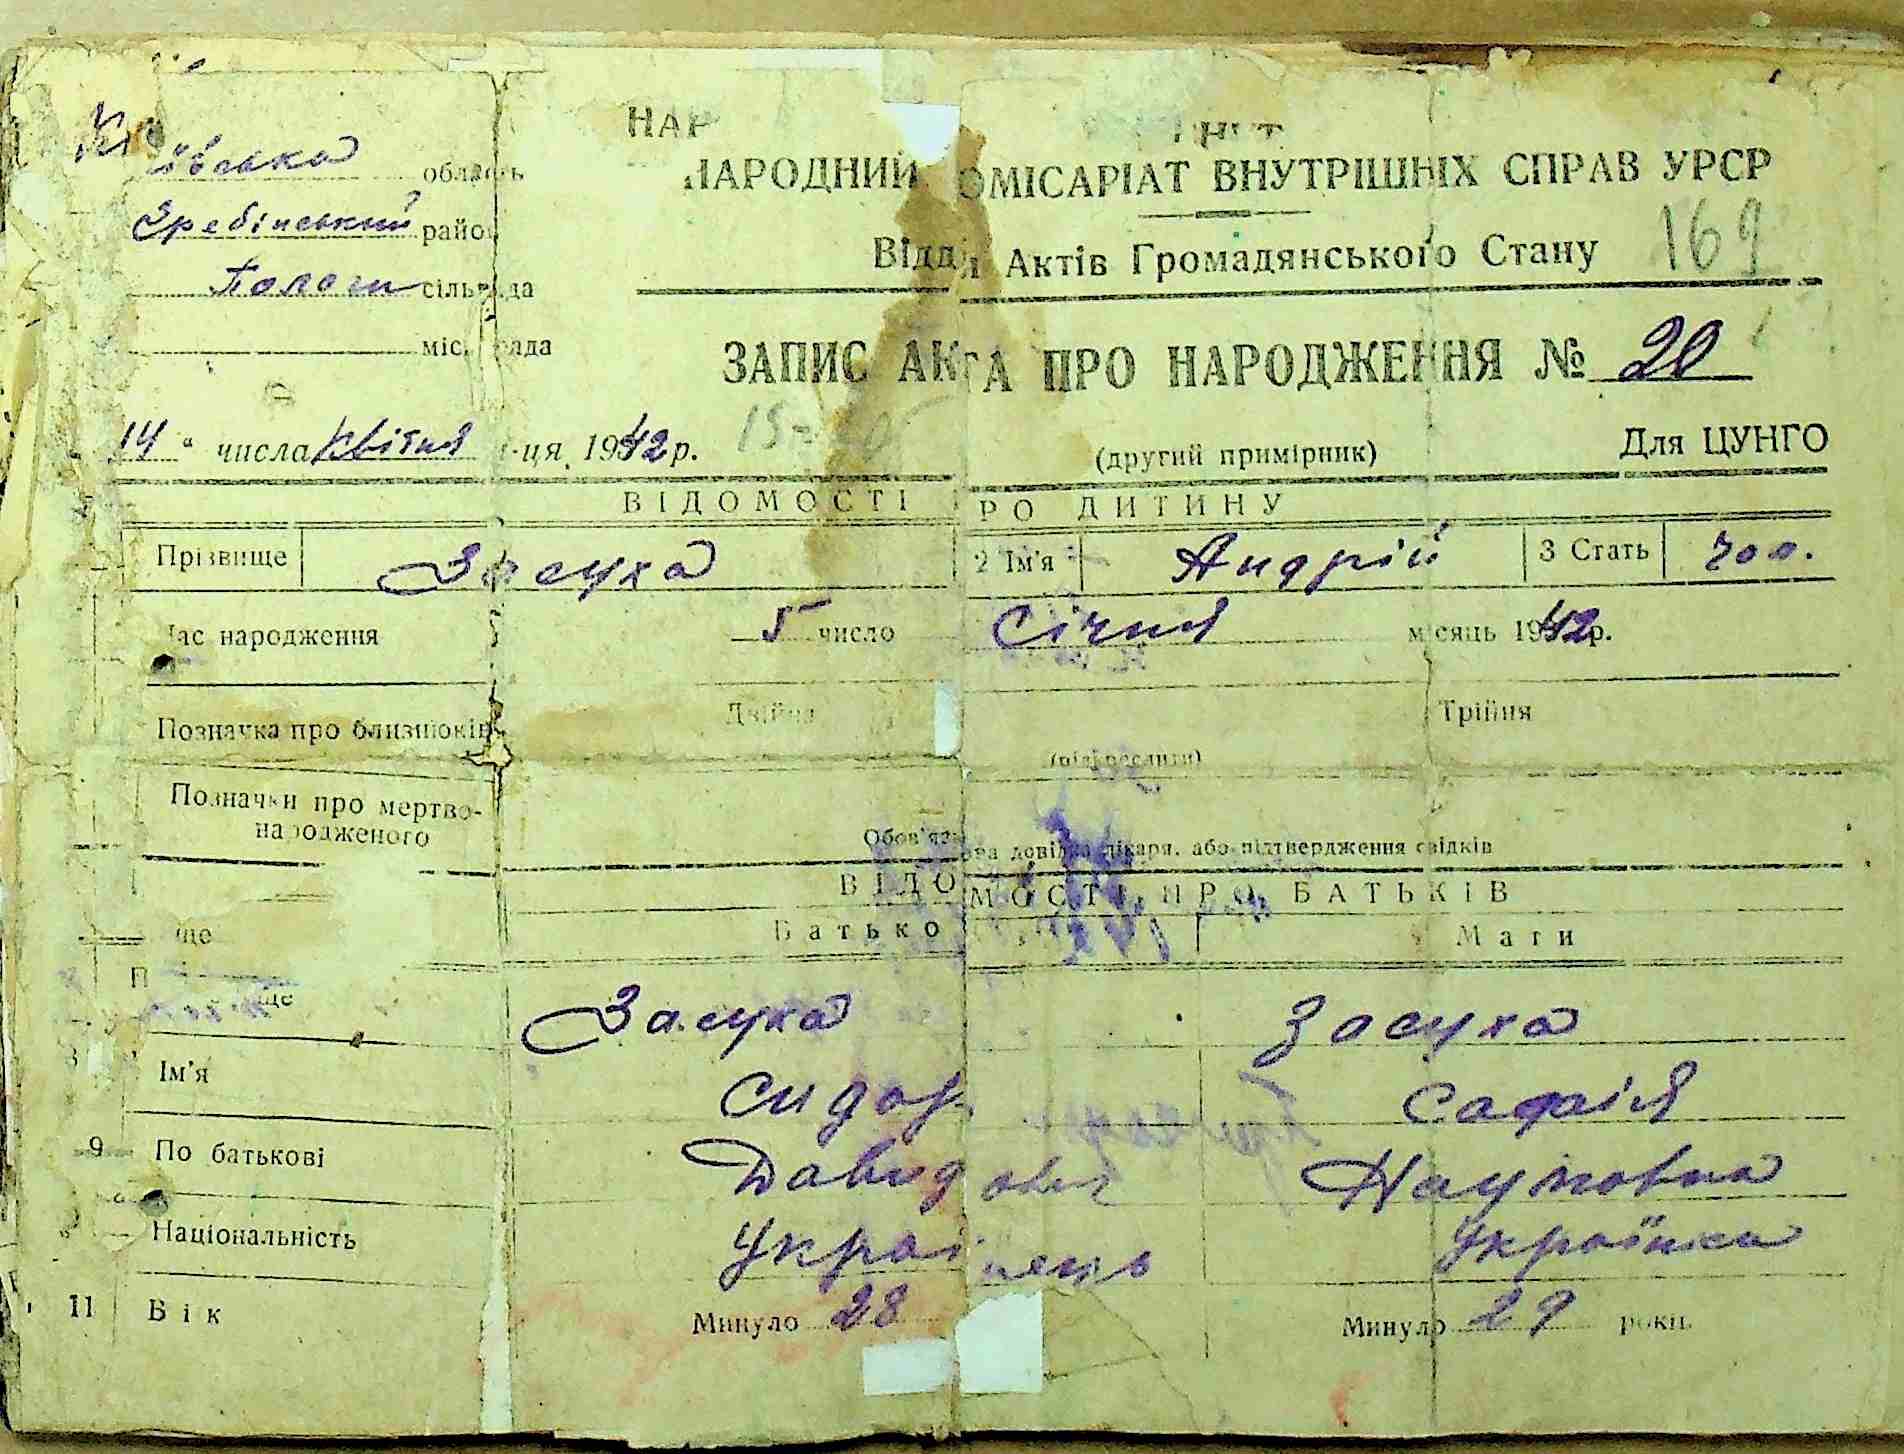 Київська область
Гребінський район
Пологи сільрада
міськрада
НАРОДНИЙ КОМІСАРІАТ ВНУТРІШНІХ СПРАВ УРСР
Відділ Актів Громадянського Стану 169
ЗАПИС АКТА ПРО НАРОДЖЕННЯ № 20
14 " числа Квітня м-ця, 1942 р.
(другий примірник) Для ЦУНГО
ВІДОМОСТІ ПРО ДИТИНУ
Прізвище Засуха 2 Ім'я Андрій 3 Стать чол.
Час народження 5 число Січня місяць 1942 р.
Позначка про близнюків Двійня Трійня
(підкреслити)
Позначки про мертво-
народженого
Обов'язкова довідка лікаря, або підтвердження свідків
ВІДОМОСТІ ПРО БАТЬКІВ
Батько Мати
Засуха Засуха
8 Ім'я Сидор Софія
9 По батькові Давидович Наумовна
Національність Українець Українка
11 Вік Минуло 28 Минуло 29 років